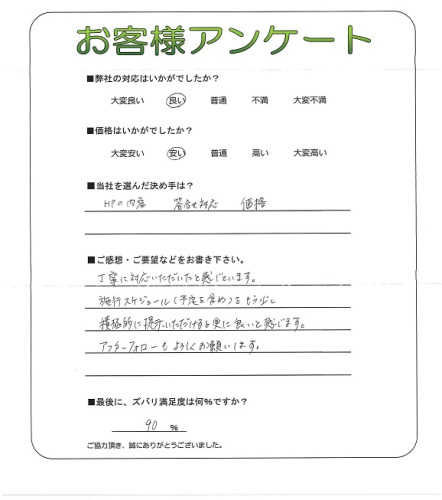 お客様アンケート
■弊社の対応はいかがでしたか？
大変良い 良い 普通 不満 大変不満
■価格はいかがでしたか？
大変安い 安い 普通 高い 大変高い
■当社を選んだ決め手は？
HPの内容 対応 価格
■ご感想・ご要望などをお書き下さい。
丁寧に対応いただいたと感じています。
施行スケジュール（予定を含め）をもう少し
積極的に提示いただけると更に良いと感じます。
アフターフォローもよろしくお願いします。
■最後に、ズバリ満足度は何%ですか？
90 %
ご協力頂き、誠にありがとうございました。